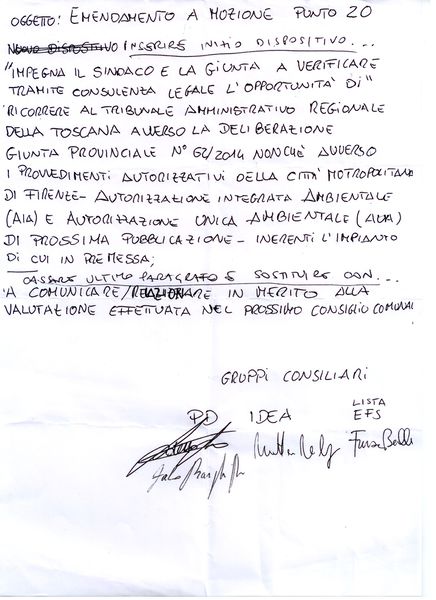 OGGETTO: EMENDAMENTO A MOZIONE PUNTO 20
NUOVO DISPOSITIVO INSERIRE INIZIO DISPOSITIVO...
"IMPEGNA IL SINDACO E LA GIUNTA A VERIFICARE
TRAMITE CONSULENZA LEGALE L'OPPORTUNITÀ DI"
RICORRERE AL TRIBUNALE AMMINISTRATIVO REGIONALE
DELLA TOSCANA AVVERSO LA DELIBERAZIONE
GIUNTA PROVINCIALE N° 62/2014 NONCHÈ AVVERSO
I PROVVEDIMENTI AUTORIZZATIVI DELLA CITTÀ METROPOLITANA
DI FIRENZE - AUTORIZZAZIONE INTEGRATA AMBIENTALE
(AIA) E AUTORIZZAZIONE UNICA AMBIENTALE (AUA)
DI PROSSIMA PUBBLICAZIONE - INERENTI L'IMPIANTO
DI CUI IN PREMESSA;
CASSARE ULTIMO PARAGRAFO E SOSTITUIRE CON...
A COMUNICARE/RELAZIONARE IN MERITO ALLA
VALUTAZIONE EFFETTUATA NEL PROSSIMO CONSIGLIO COMUNAL
GRUPPI CONSILIARI
PD IDEA LISTA EFS